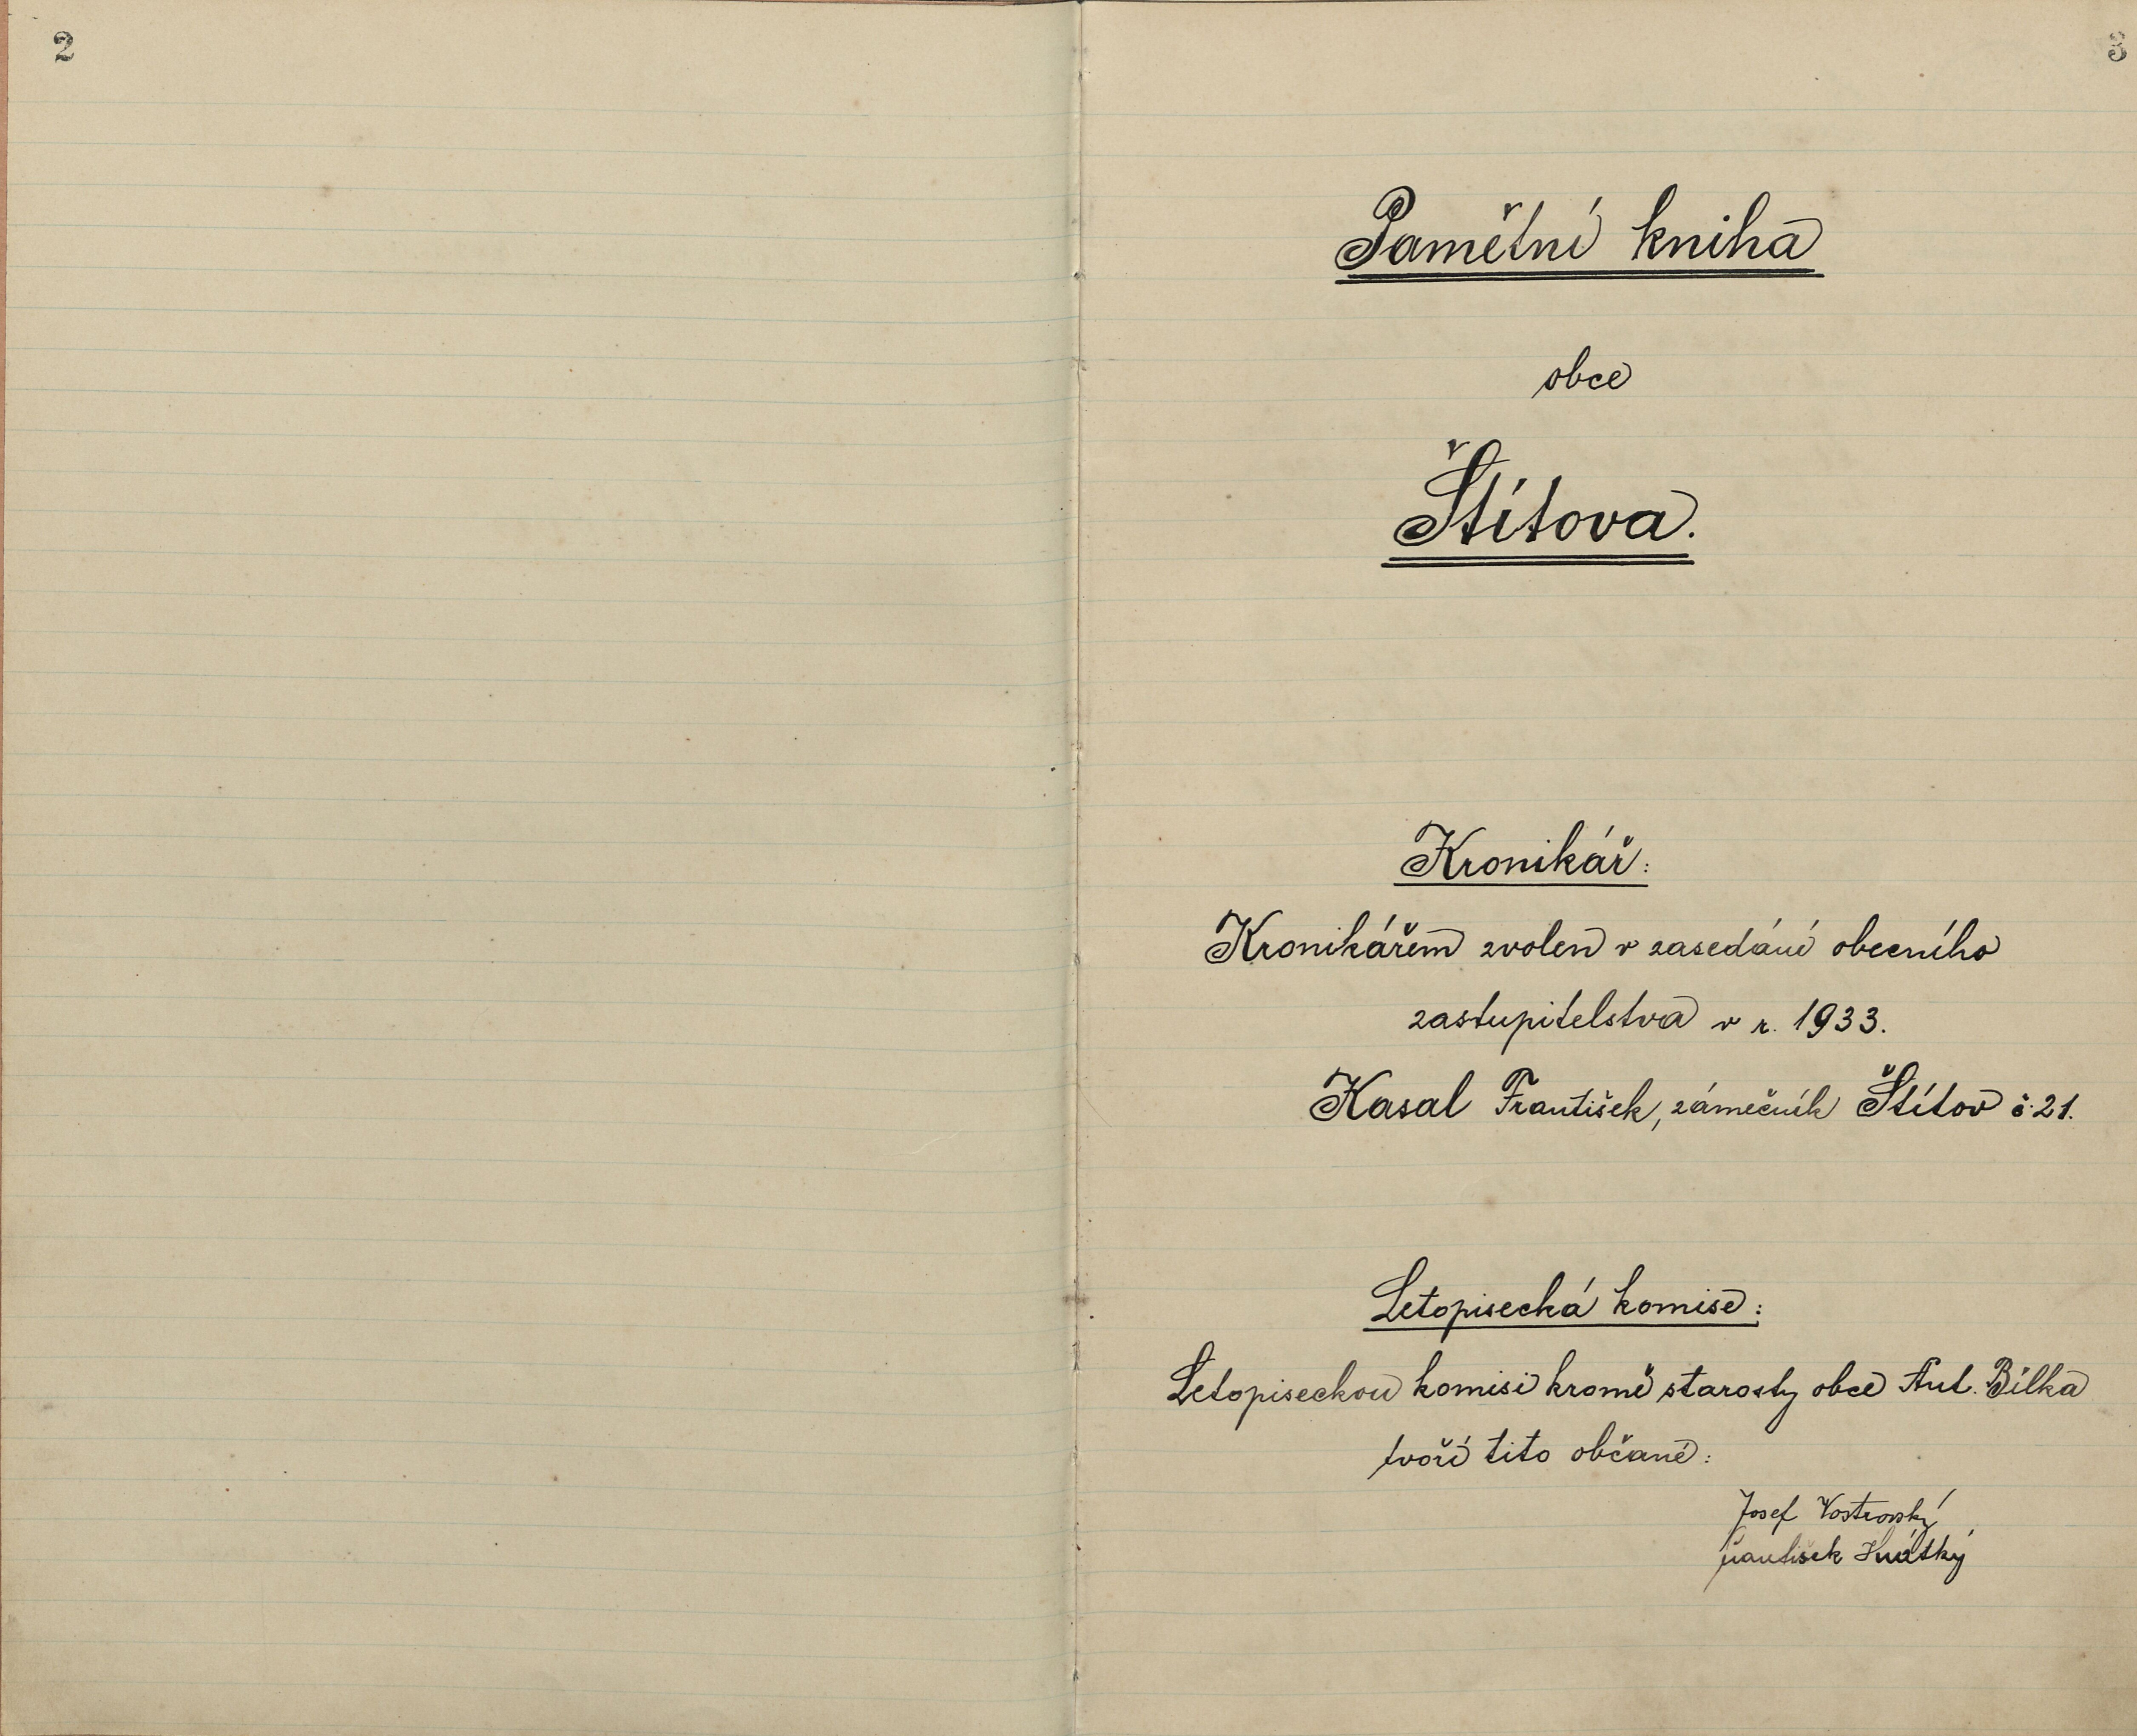 2
3
Pamětní kniha
obce
Štítova.
Kronikář:
Kronikářem zvolen v zasedání obecního
zastupitelstva v r. 1933.
Kasal František, zámečník Štítov č. 21.
Letopisecká komise:
Letopiseckou komisi kromě starosty obce Ant. Bílka
tvoří tito občané:
Josef Vostrovský
František